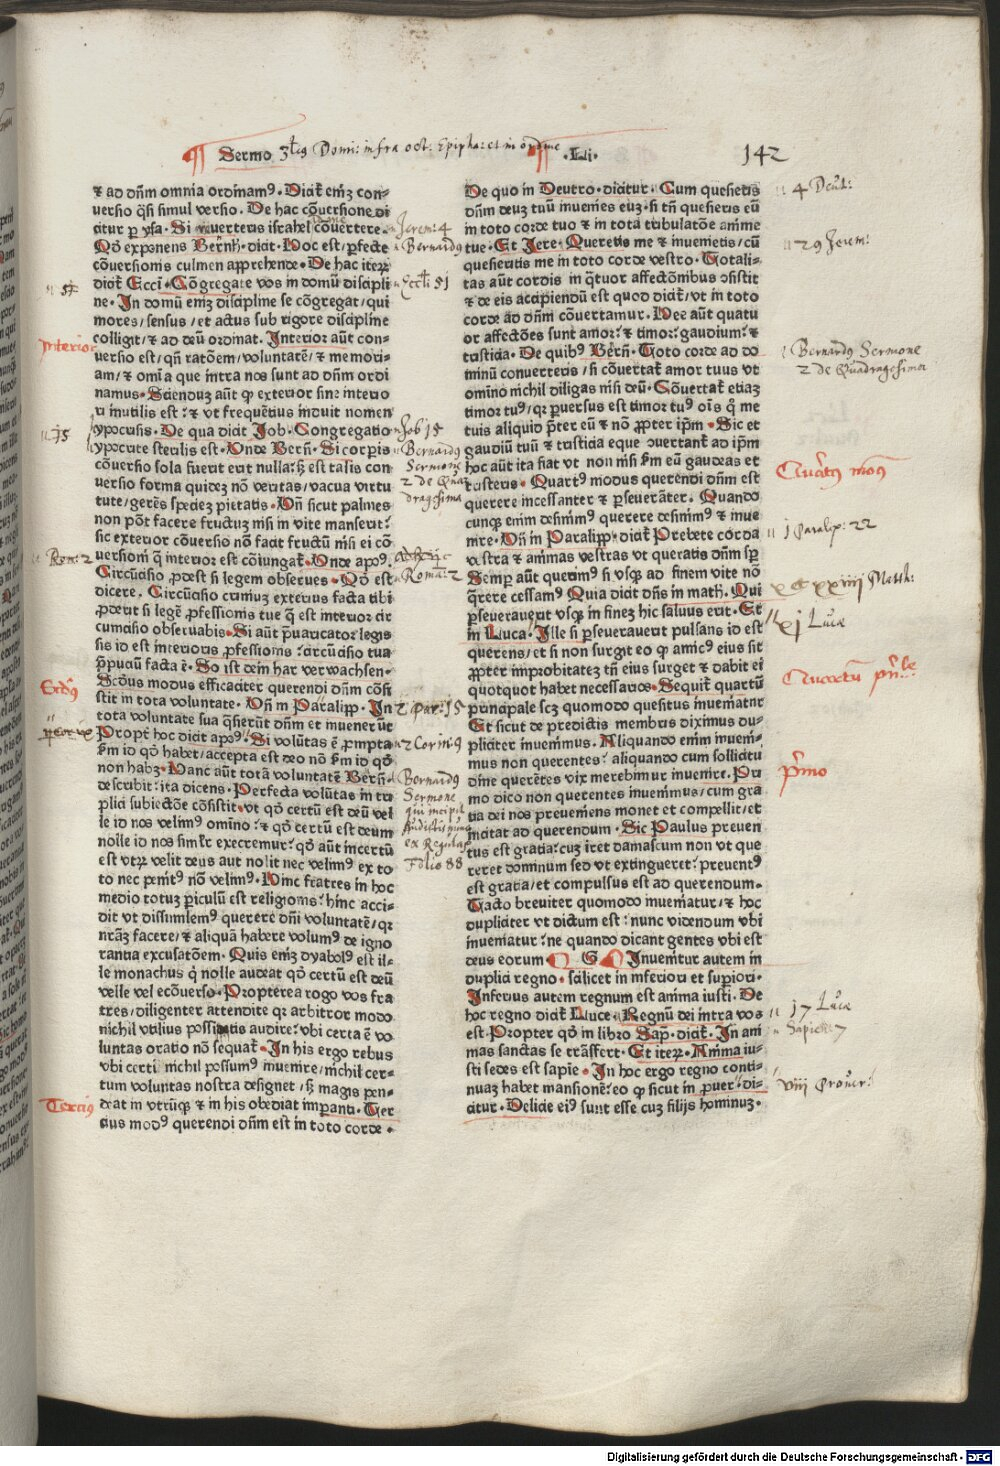 Sermo 3tius Domi: infra oct: Epipha: et in ordine .Lii. 142
⁊ ad dñm omnia ordinamꝰ. Dicit̃ em̃ con-
uersio q̃si simul versio. De hac cõuersione di
citur ꝑ ysa. Si reuerteris israhel cõuertere.
Qõ exponens Berñ. dicit. Hoc est/ ꝑfecte
cõuersionis culmen apprehende. De hac iteꝝ
dicit̃ Ecci. Cõgregate vos in domũ discipli
ne. In domũ em̃ discipline se cõgregat/ qui
mores/ sensus/ et actus sub rigore discipline
colligit/ ⁊ ad deũ ordinat. Interior aũt con-
uersio est/ qñ ratõem/ voluntatẽ/ ⁊ memori-
am/ ⁊ om̃ia que intra nos sunt ad dñm ordi
namus. Sciendũ aũt ꝙ exterior sine interio
ri inutilis est: ⁊ vt frequẽtius induit nomen
ypocrisis. De qua dicit Job. Congregatio
ypocrite sterilis est. Vnde Berñ. Si corꝑis
cõuersio sola fuerit erit nulla: sꝫ est talis con
uersio forma quidẽ nõ veritas/ vacua virtu
tute/ gerẽs speciẽ pietatis. Vñ sicut palmes
non põt facere fructũ nisi in vite manserit:
sic exterior cõuersio nõ facit fructũ nisi ei cõ
uersioni q̃ interior est cõiungat̃. Vnde apꝰs.
Circũcisio ꝓdest si legem obserues. Qõ est
dicere. Circũcisio cuiuꝰ exterius facta tibi
ꝓderit si legẽ ꝓfessionis tue q̃ est interior cir
cumcisio obseruabis. Si aũt p̃uaricator legis
sis id est interioris ꝓfessionis: circũcisio tua
p̃puciũ facta ẽ. So ist dein har verwachsen.
Scd̃us modus efficaciter querendi dñm cõsi
stit in tota voluntate. Vñ in Paralipp. In
tota voluntate sua q̃sierũt dñm et inuenerũt
Propt̃ hoc dicit apꝰs. Si volũtas ẽ ꝓmpta
ẜm id qõ habet/ accepta est deo nõ ẜm id qõ
non habꝫ. Hanc aũt totã voluntatẽ Berñ.
describit: ita dicens. Perfecta volũtas in tri
plici subiectiõe cõsistit. vt qõ certũ est deũ vel
le id nos velimꝰ omĩno: ⁊ qõ certũ est deum
nolle id nos similr̃ execremur: qõ aũt incertũ
est vtꝝ velit deus aut nolit nec velimꝰ ex to
to nec penitꝰ nõ velimꝰ. Hinc fratres in hoc
medio totuꝫ ꝑiculũ est religionis: hinc acci-
dit vt dissimlemꝰ querere dñi voluntatẽ/ qꝛ
nr̃aꝫ facere/ ⁊ aliquã habere volumꝰ de igno
rantia excusatõem. Quis em̃ dyabolꝰ est il-
le monachus q̃ nolle audeat qõ certũ est deũ
velle vel ecõuerso. Propterea rogo vos fra
tres/ diligenter attendite qꝛ arbitror modo
nichil vtilius possitis audire: vbi certa ẽ vo
luntas oratio nõ sequat̃. In his ergo rebus
vbi certi nichil possumꝰ inuenire/ nichil cer-
tum voluntas nostra designet/ sꝫ magis pen-
deat in vtrũqꝫ ⁊ in his obediat impanti. Ter
cius modꝰ querendi dñm est in toto corde.
De quo in Deutro. dicitur. Cum quesieris
dñm deuꝫ tuũ inuenies euꝫ. si tñ quesieris eũ
in toto corde tuo ⁊ in tota tribulatõe anime
tue. Et Jere. Queretis me ⁊ inuenietis/ cũ
quesieritis me in toto corde vestro. Totali-
tas aũt cordis in q̃tuor affectõnibus ↄ̃sistit
⁊ de eis accipiendũ est quod dicit̃/ vt in toto
corde ad dñm cõuertamur. Hee aũt quatu
or affectões sunt amor: ⁊ timor: gaudium: ⁊
tristicia. De quibꝰ Berñ. Toto corde ad do
minũ conuerteris/ si cõuertat̃ amor tuus vt
omĩno nichil diligas nisi deũ. Cõuertat̃ etiaꝫ
timor tuꝰ/ qꝛ ꝑuersus est timor tuꝰ oĩs q̃ me
tuis aliquid p̃ter eũ ⁊ nõ ꝓpter ip̃m. Sic et
gaudiũ tuũ ⁊ tristicia eque ↄuertant̃ ad ip̃m
hoc aũt ita fiat vt non nisi ẜm eũ gaudeas et
tristeris. Quartꝰ modus querendi dñm est
querere incessanter ⁊ ꝑseuerãter. Quando
cunqꝫ enim desinimꝰ querere desinimꝰ ⁊ inue
nire. Vñ in Paralipp. dicit̃ Prebete corda
vestra ⁊ animas vestras vt queratis dñm. Sꝑ
Semꝑ aũt querimꝰ si vsqꝫ ad finem vite nõ
q̃rere cessamꝰ Quia dicit dñs in math. Qui
ꝑseuerauerit vsqꝫ in fineꝫ hic saluus erit. Et
in Luca. Ille si ꝑseuerauerit pulsans id est
querens/ et si non surgit eo ꝙ amicꝰ eius sit
ꝓpter improbitateꝫ tñ eius surget ⁊ dabit ei
quotquot habet necessarios. Sequit̃ quartũ
principale scꝫ quomodo quesitus inueniat̃ur
Et sicut de predictis membris diximus du-
pliciter inuenimus. Aliquando enim inueni-
mus non querentes: aliquando cum sollicitu
dine querẽtes vix merebimur inuenire. Pri
mo dico non querentes inuenimus/ cum gra
tia dei nos preueniens monet et compellit/ et
incitat ad querendum. Sic Paulus preuen
tus est gratia: cuꝫ iret damascum non vt que
reret dominum sed vt extingueret: preuentꝰ
est gratia/ et compulsus est ad querendum.
Tacto breuiter quomodo inueniatur/ ⁊ hoc
dupliciter vt dictum est: nunc videndum vbi
inueniatur: ne quando dicant gentes vbi est
deus eorum G Inuenitur autem in
duplici regno. scilicet in inferiori et superiori.
Inferius autem regnum est anima iusti. De
hoc regno dicit̃ Luce. Regnũ dei intra vos
est. Propter qõ in libro Sap̃. dicit̃. In ani
mas sanctas se trãsfert. Et iteꝝ. Anima iu-
sti sedes est sapie. In hoc ergo regno conti-
nuaꝫ habet mansionẽ: eo ꝙ sicut in prouer. di-
citur. Delicie eiꝰ sunt esse cuꝫ filijs hominuꝫ.
Interior
Tercius
Jerem: 4
Bernardꝰ
Eccli 51
Job 15
Bernardꝰ
Sermone
2 de Qua
dragesima
Rom: 2
Roma: 2
2 Par: 15
2 Corin: 9
Bernardꝰ
Sermone
qui incipit
Folio 88
4 Deut:
29 Jerem:
Bernardꝰ Sermone
2 de Quadragesima
Quartꝰ modꝰ
j Paralip: 22
xxiiij Matth:
xj Lucæ
Quartum prīle
Primo
17 Lucæ
Sapien: 7
viij Prouer:
Digitalisierung gefördert durch die Deutsche Forschungsgemeinschaft - DFG